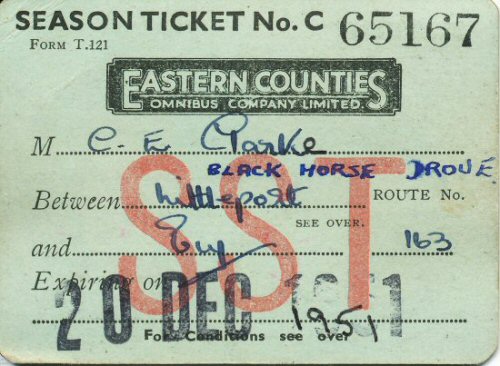 SEASON TICKET No. C 65167
FORM T.121
EASTERN COUNTIES
OMNIBUS COMPANY LIMITED.
M C. E. Clarke
BLACK HORSE DROVE
Between Littleport ROUTE No.
SEE OVER.
and Ely 163
Expiring on
SST
20 DEC 1951
1951
For Conditions see over